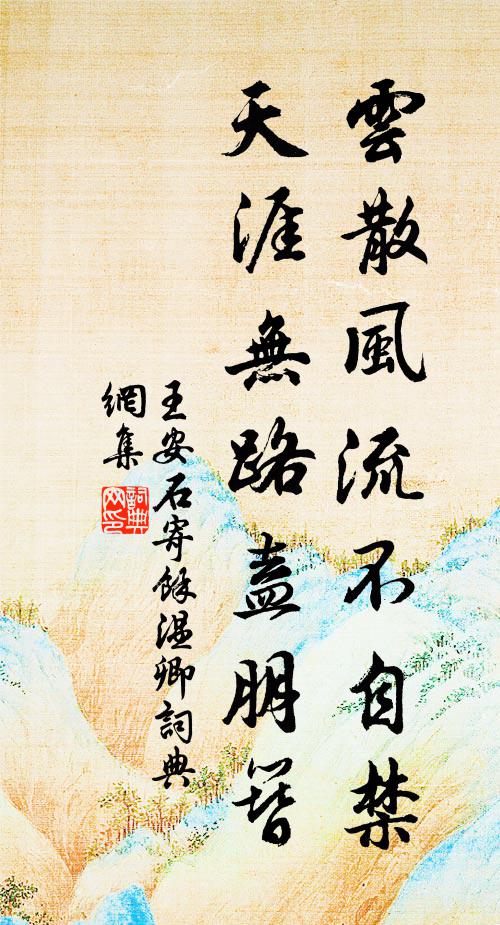 雲散風流不自禁
天涯無路盍朋簪
王安石寄餘溫卿詞典
網集
詞典
网印